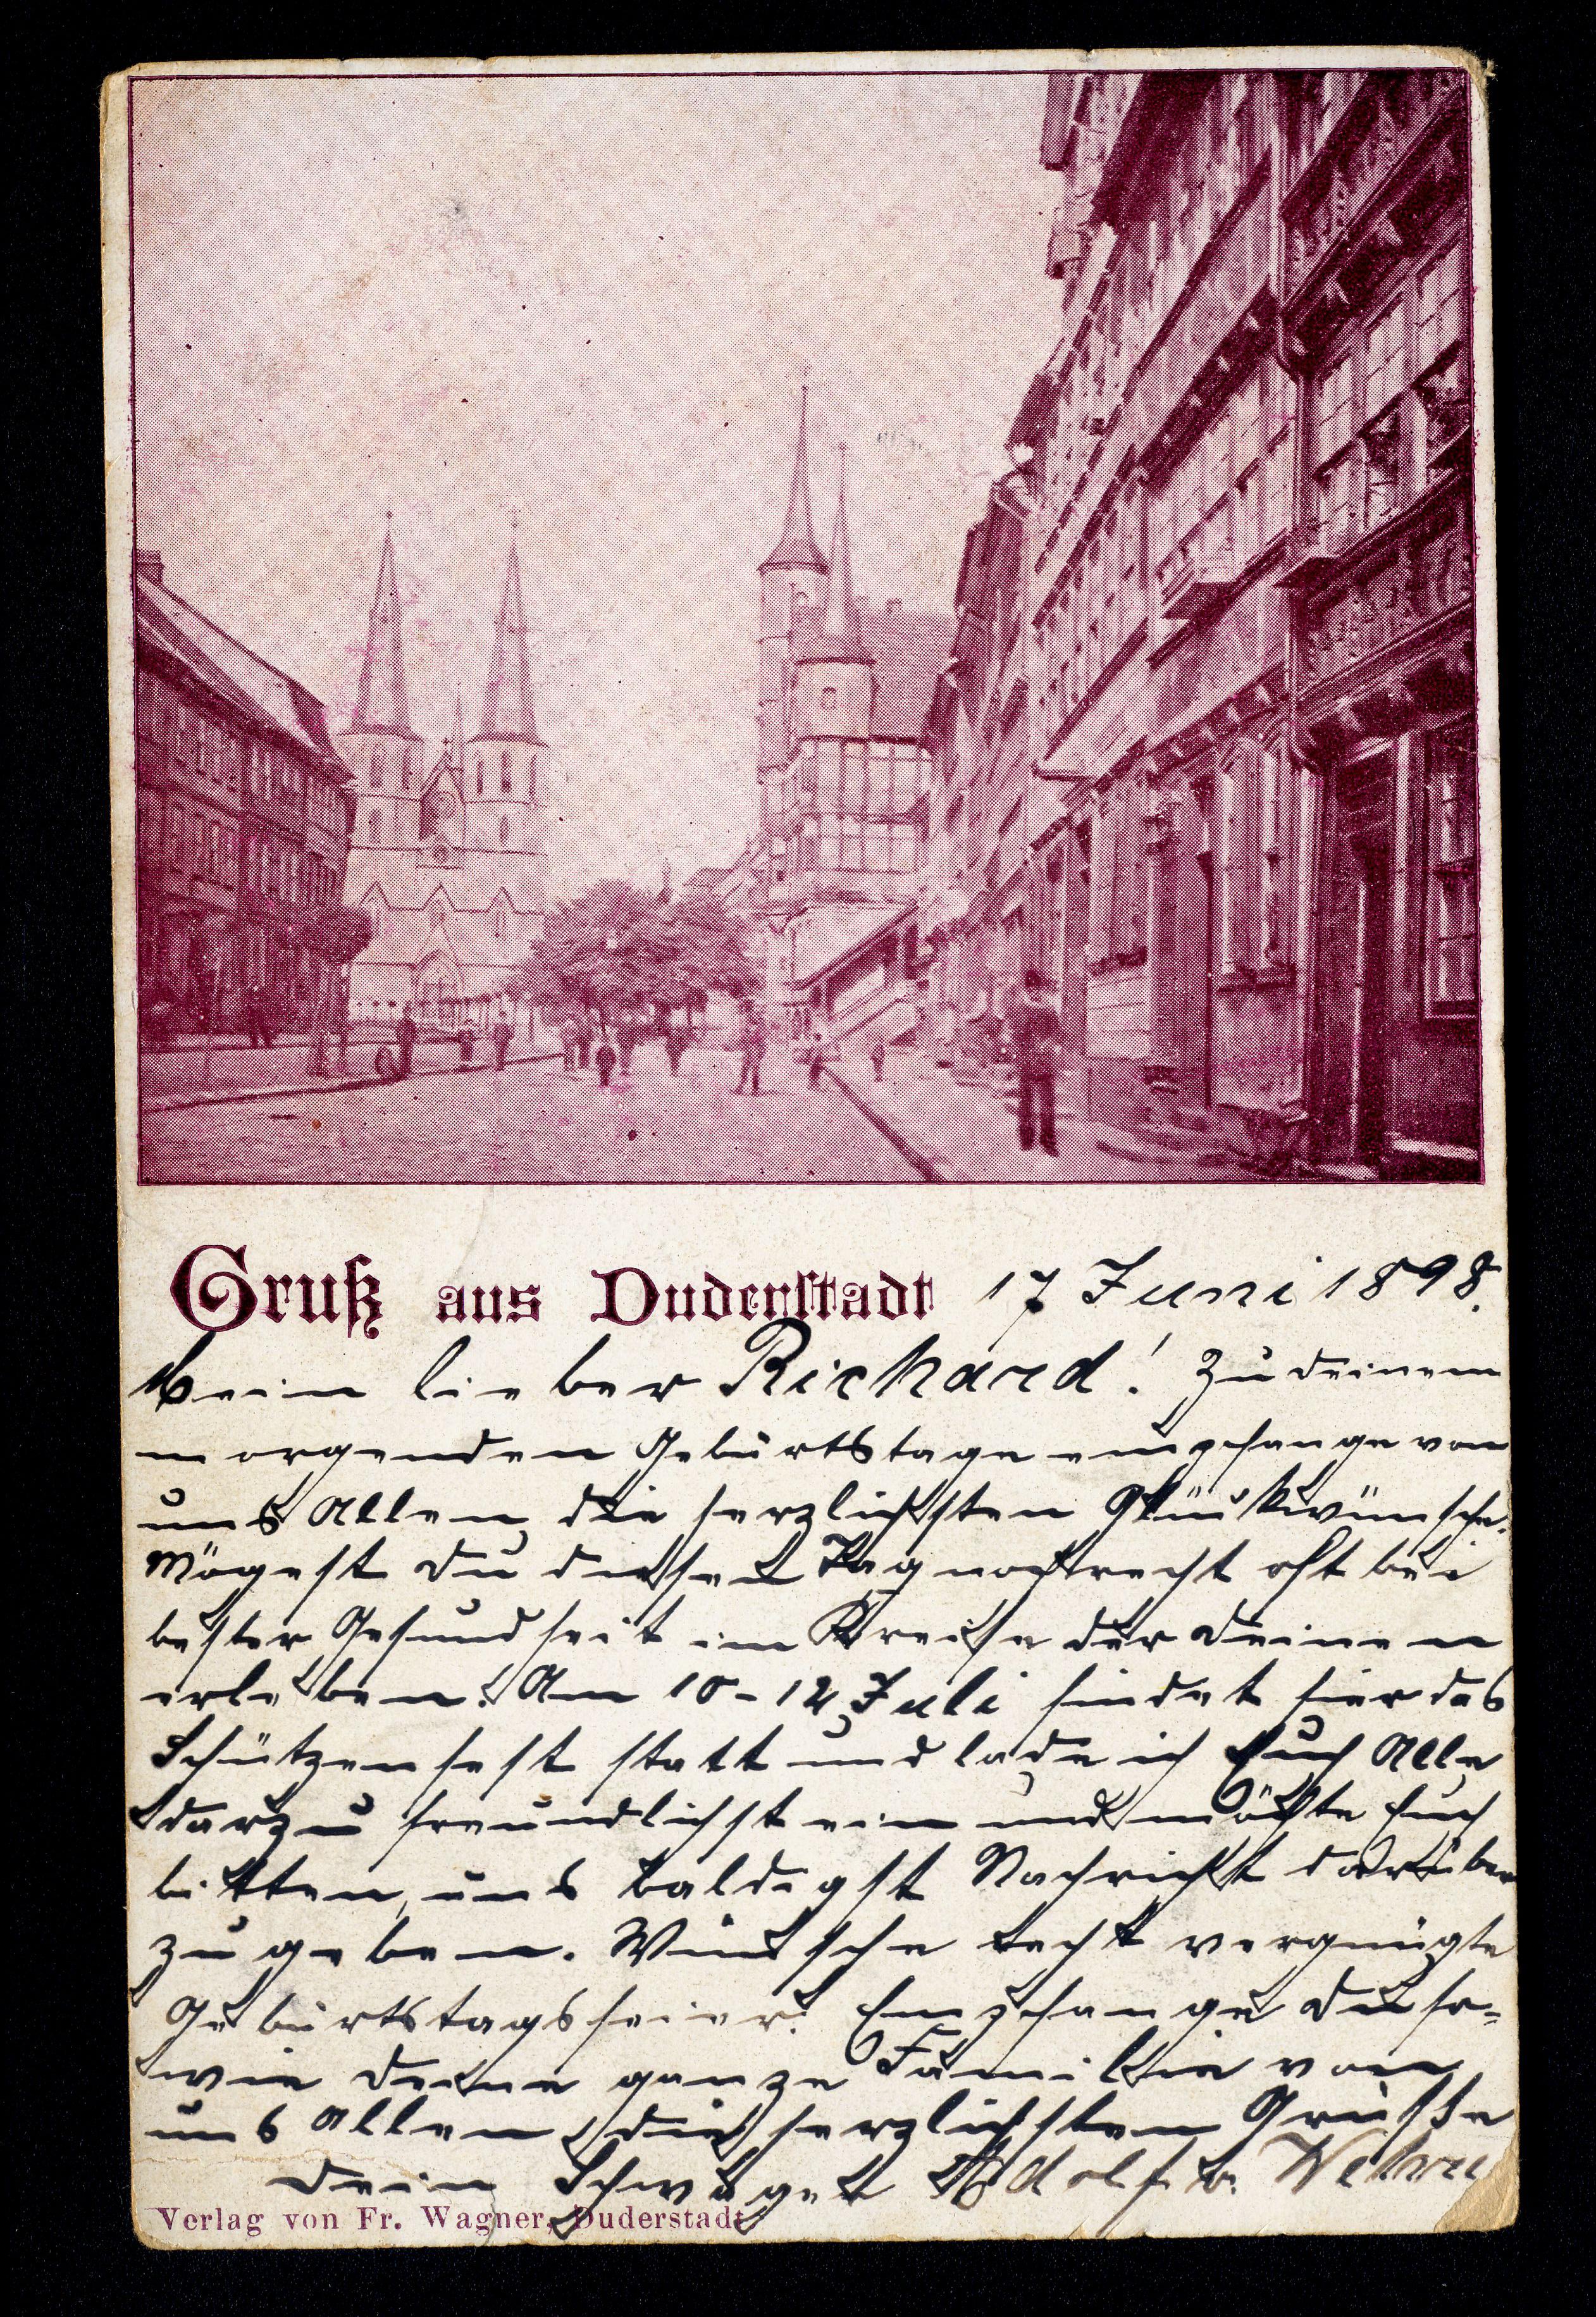 Gruß aus Duderstadt 17 Juni 1898.
Mein lieber Richard! Zu deinem
morgenden Geburtstage empfange von
uns Allen die herzlichsten Glückwünsche.
Mögest du diesen Tag noch recht oft bei
bester Gesundheit im Kreise der deinen
erleben. Am 10-12 Juli findet hier das
Schützenfest statt und lade ich Euch Alle
darzu freundlichst ein und möchte Euch
bitten, uns baldigst Nachricht darüber
zu geben. Wünsche recht vergnügte
Geburtstagsfeier. Empfange du so=
wie deine ganze Familie von
uns Allen die herzlichsten Grüße
dein Schwager Adolf u.
Verlag von Fr. Wagner, Duderstadt